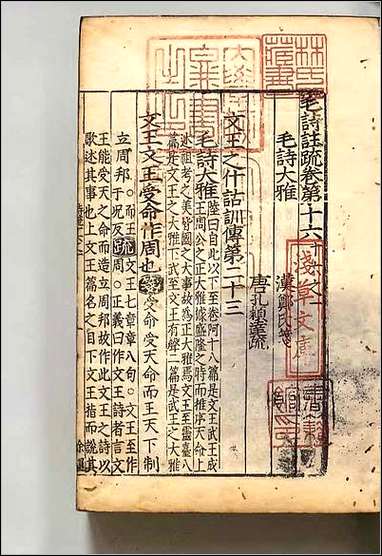 毛詩註疏卷第十六 十六之一
毛詩大雅 漢鄭氏箋
唐孔穎達疏
文王之什詁訓傳第二十三
毛詩大雅 陸曰自此以下至卷阿十八篇是文王武王成
王周公之正大雅據盛隆之時而推序天命上
述祖考之美皆國之大事故為正大雅焉文王至靈臺八
篇是文王之大雅下武至文王有聲二篇是武王之大雅
文王文王受命作周也 箋 受命受天命而王天下制
立周邦。而王
于況反 疏 文王七章章八句。文王至作
周。正義曰作文王詩者言文
王能受天之命而造立周邦故作此文王之詩以
歌述其事也上文王篇名之目下文王指而說其
淺草文庫
林氏藏書